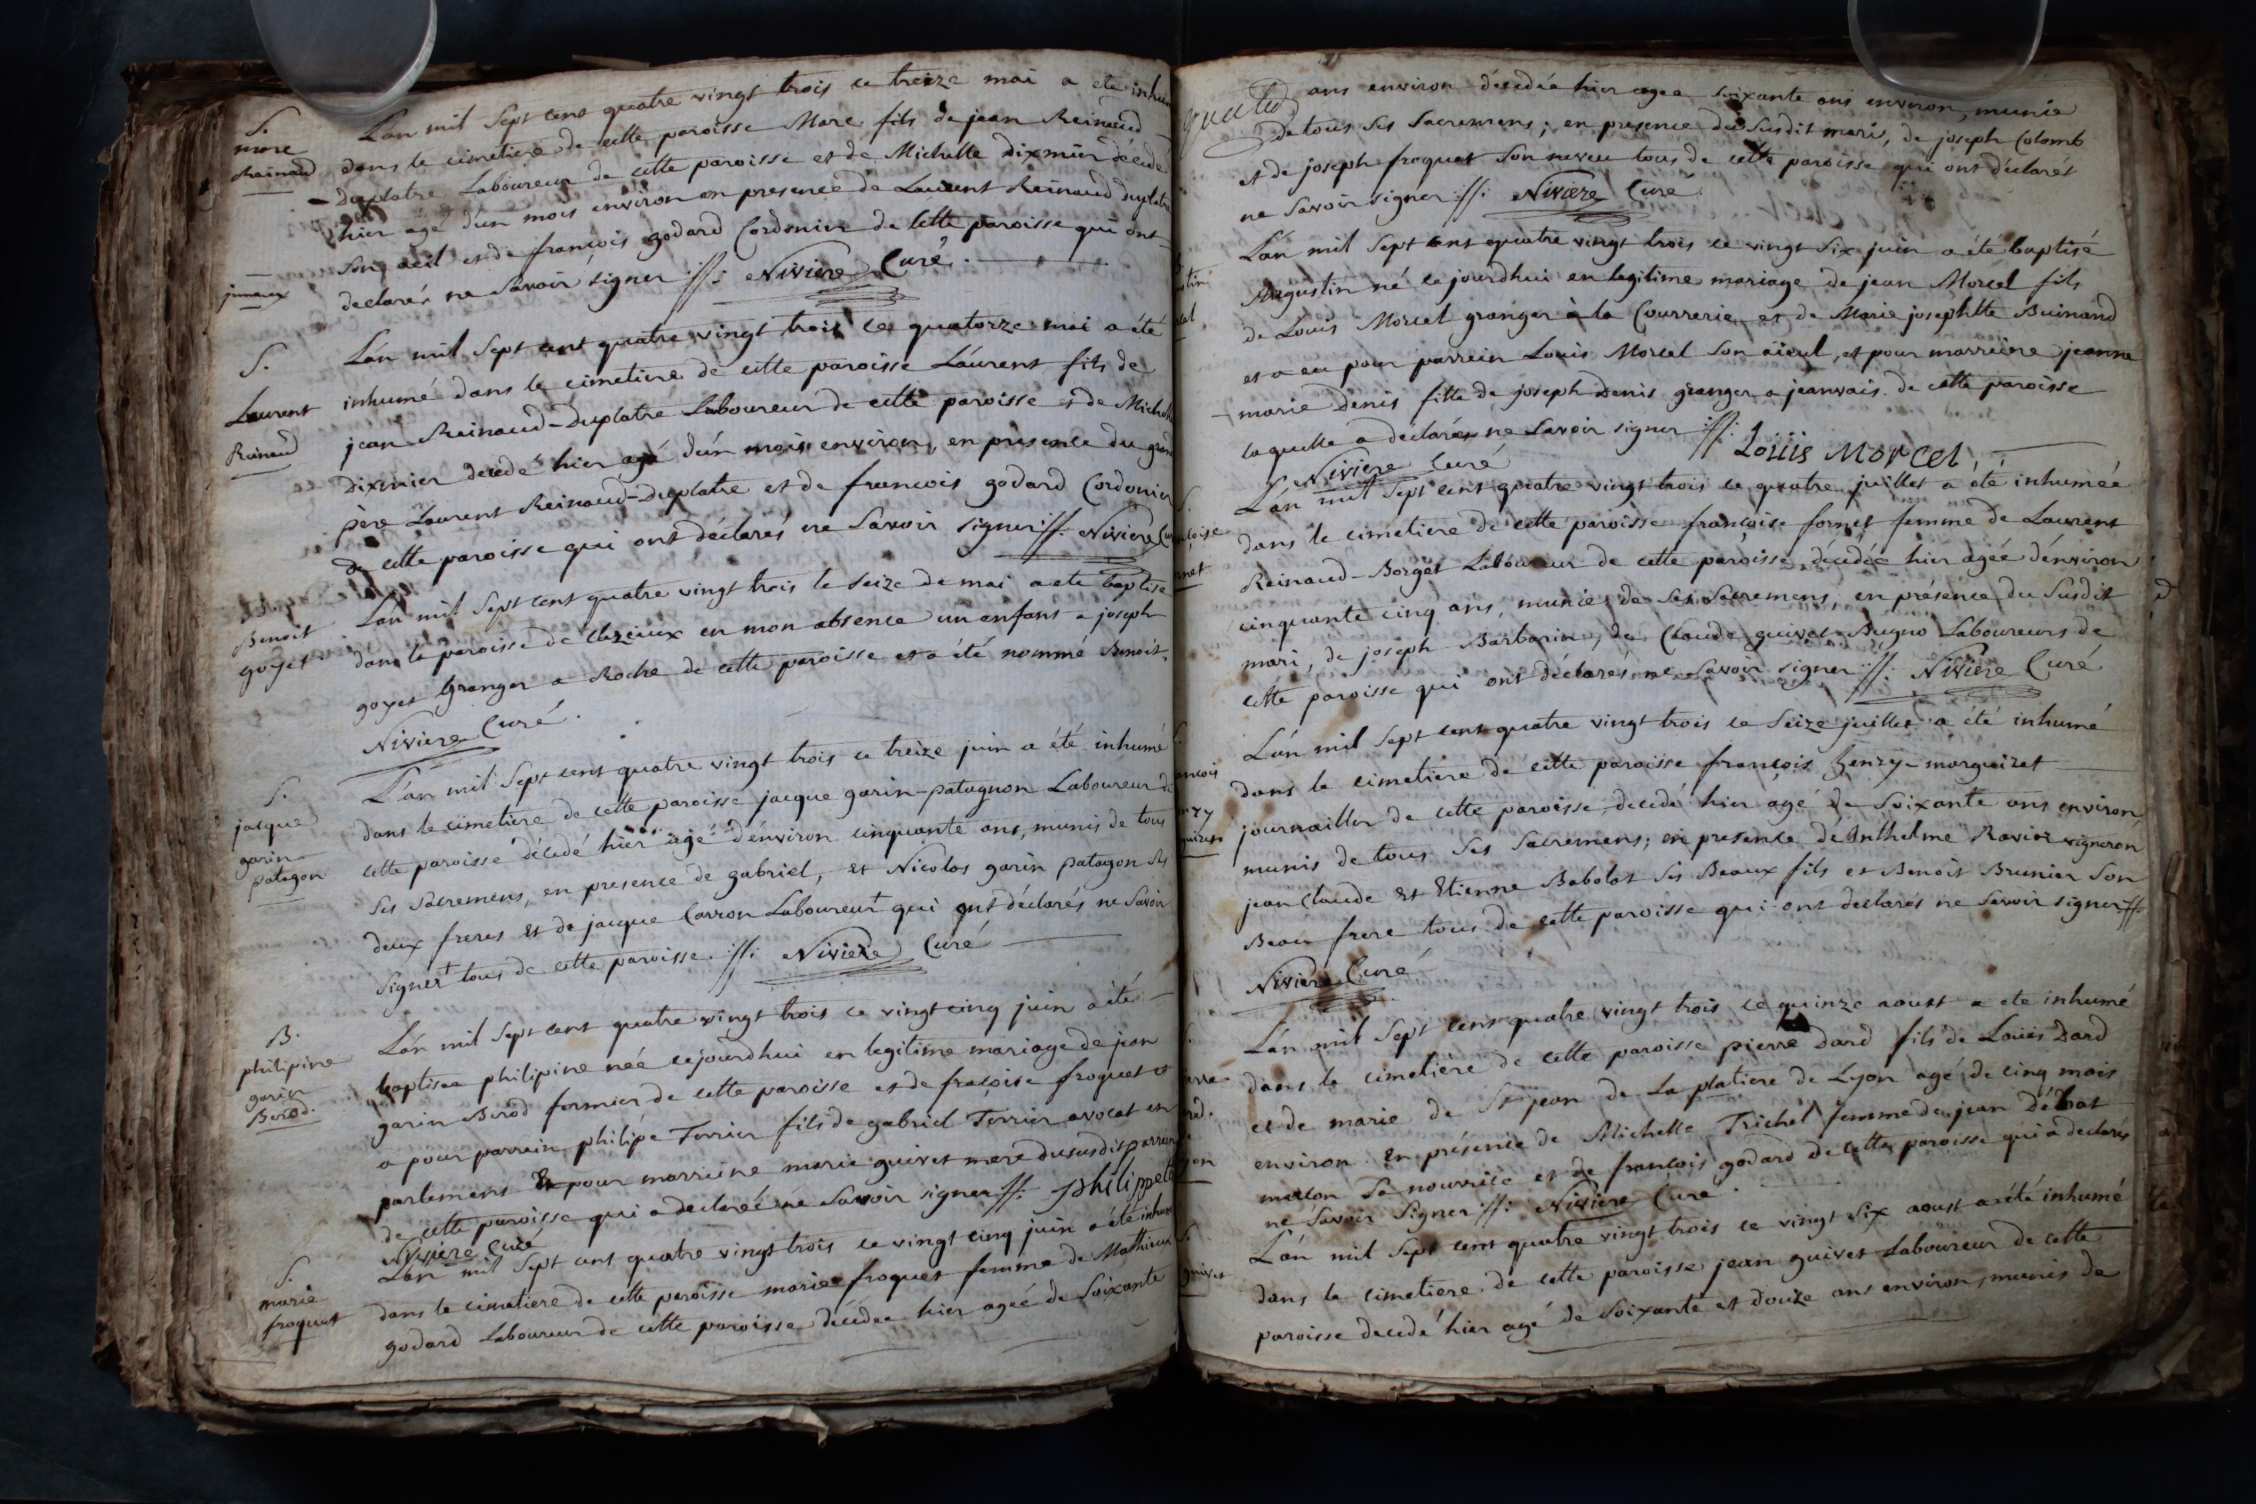 S.
marc
Rainaud
L'an mil sept cent quatre vingt trois ce treize mai a ete inhumé
dans le cimetiere de cette paroisse Marc fils de jean Reinaud
duplatre Laboureur de cette paroisse et de Michelle dixmier décédé
hier agé d'un mois environ en presence de Laurent Reinaud duplatre
son aeil et de françois godard Cordonier de cette paroisse qui ont
declarés ne savoir signer ://: Niviere Curé.
jumeaux
S.
Laurent
Reinaud
L'an mil sept cent quatre vingt trois ce quatorze mai a été
inhumé dans le cimetiere de cette paroisse Laurent fils de
jean Reinaud-Duplatre Laboureur de cette paroisse et de Michelle
dixmier decedé hier agé d'un mois environ, en presence du grand
père Laurent Reinaud-Duplatre et de francois godard Cordonier
de cette paroisse qui ont déclarés ne Savoir signer ://: Niviere Curé
Benoit
goyet
L'an mil sept cent quatre vingt trois le seize de mai a ete baptisé
dans la paroisse de clezieux en mon absence un enfant a joseph
goyet Granger a Roche de cette paroisse et a été nommé Benoit.
Niviere Curé.
S.
jacque
garin
patagon
L'an mil sept cent quatre vingt trois ce treize juin a été inhumé
dans le cimetiere de cette paroisse jacque garin-patagnon Laboureur de
cette paroisse décedé hier agé d'environ cinquante ans, munis de tous
ses sacremens, en presence de gabriel, et Nicolas garin patagon ses
deux freres et de jacque Carron Laboureur qui ont déclarés ne savoir
signer tous de cette paroisse. ://: Niviere Curé
B.
philipine
garin
Berod.
L'an mil sept cent quatre vingt trois ce vingt cinq juin a été
baptisee philipine née cejourdhui en legitime mariage de jean
garin Berod fermier de cette paroisse et de fraçoise froquet et
a pour parrein philipe Terrier fils de gabriel Terrier avocat en
parlement Et pour marreine marie guivet mere du susdit parrein
de cette paroisse qui a declaré ne savoir signer ://: philippe
Niviere Curé
S.
marie
froquet
L'an mil sept cent quatre vingt trois ce vingt cinq juin a été inhumé
dans le cimetiere de cette paroisse mariee froquet femme de Mathieu
godard Laboureur de cette paroisse décédee hier agée de soixante
ans environ décédée hier agee soixante ans environ, munie
de tous ses Sacremens; en presence du susdit mari, de joseph Colomb
et de joseph froquet son neveu tous de cette paroisse qui ont déclarés
ne savoir signer ://: Niviere Curé.
L'an mil sept cent quatre vingt trois ce vingt six juin a été baptisé
Augustin né cejourdhui en legitime mariage de jean Morcel fils
de Louis Morcel granger à la Courrerie et de Marie josephtte Buinand
et a eu pour parrein Louis Morcel son aïeul, et pour marreine jeanne
marie Denis fille de joseph Denis granger a jeanvais de cette paroisse
laquelle a déclarée ne savoir signer ://:
Louiis Morcel
Niviere Curé
L'an mil sept cent quatre vingt trois ce quatre juillet a été inhumée
dans le cimetiere de cette paroisse françoise fornet femme de Laurent
Reinaud-Borget Laboureur de cette paroisse, décédée hier agée d'environ
cinquante cinq ans, munie de ses Sacremens, en présence du Susdit
mari, de joseph Barbarin, de Claude guivet-Bugno Laboureurs de
cette paroisse qui ont déclarés ne savoir signer ://: Niviere Curé
L'an mil sept cent quatre vingt trois ce seize juillet a été inhumé
dans le cimetiere de cette paroisse françois henry-marguiret
journaillier de cette paroisse decedé hier agé de soixante ans environ
munis de tous ses sacremens; en presence de Anthelme Ravier vigneron
jean Claude et Etienne Babolat ses Beaux fils et Benoit Brunier son
Beau frere tous de cette paroisse qui ont declarés ne savoir signer ://:
Niviere Curé
L'an mil sept cent quatre vingt trois ce quinze aoust a ete inhumé
dans le cimetière de cette paroisse pierre Dard fils de Louis Dard
et de marie de St jean de La platiere de Lyon agé de cinq mois
environ. En présence de Michelle Trichel femme de jean Débat
metton sa nourrice et de françois godard de cette paroisse qui a declarés
ne savoir signer ://: Niviere Curé.
L'an mil sept cent quatre vingt trois ce vingt six aoust a été inhumé
dans le cimetiere de cette paroisse jean guivet Laboureur de cette
paroisse decedé hier agé de soixante et douze ans environ, munis de